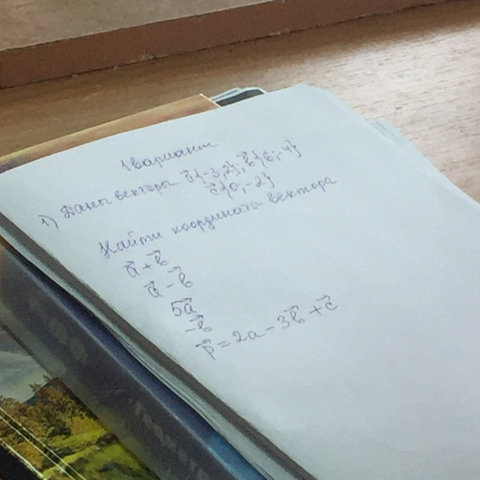 1 вариант
1) Даны векторы a⃗{-3;2}; b⃗{6;-4}
c⃗{0;-2}
Найти координаты вектора
a⃗+b⃗
a⃗-b⃗
5a⃗
-b⃗
p⃗=2a-3b⃗+c⃗